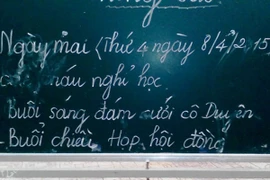 Ngày mai (Thứ 4 ngày 8/4/2015
nghỉ học
buổi sáng đám cưới cô Duyên
- Buổi chiều Họp hội đồng